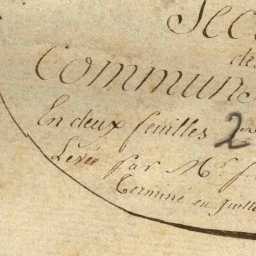 Sec
de
Commun
En deux feuilles 2
Levée par Mr. J
Terminé en Juille